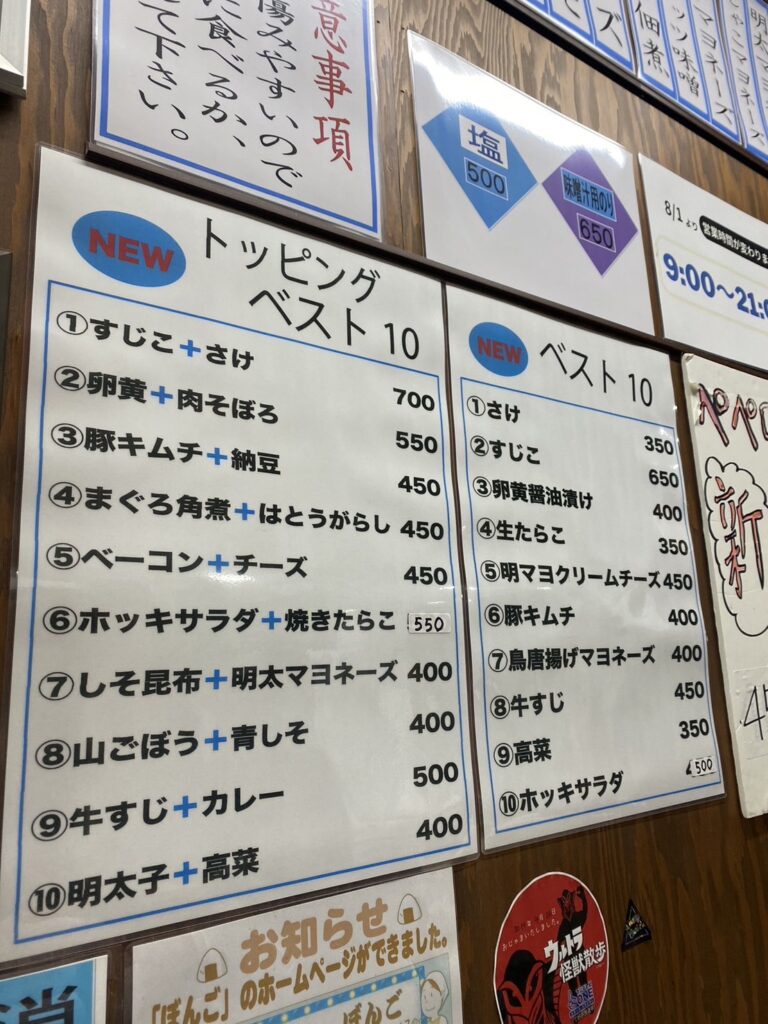 意事項
傷みやすいので
に食べるか、
て下さい。
塩
500
味噌汁用のり
650
8/1より
営業時間が変わりま
9:00～21:0
NEW
トッピング
ベスト10
①すじこ+さけ 700
②卵黄+肉そぼろ 550
③豚キムチ+納豆 450
④まぐろ角煮+はとうがらし 450
⑤ベーコン+チーズ 450
⑥ホッキサラダ+焼きたらこ 550
⑦しそ昆布+明太マヨネーズ 400
⑧山ごぼう+青しそ 400
⑨牛すじ+カレー 500
⑩明太子+高菜 400
NEW
ベスト10
①さけ 350
②すじこ 650
③卵黄醤油漬け 400
④生たらこ 350
⑤明マヨクリームチーズ 450
⑥豚キムチ 400
⑦鳥唐揚げマヨネーズ 400
⑧牛すじ 450
⑨高菜 350
⑩ホッキサラダ 500
ペペロ
新
お知らせ
「ぼんご」のホームページができました。
ぼんご
おじゃまいたしました。
ウルトラ
怪獣散歩